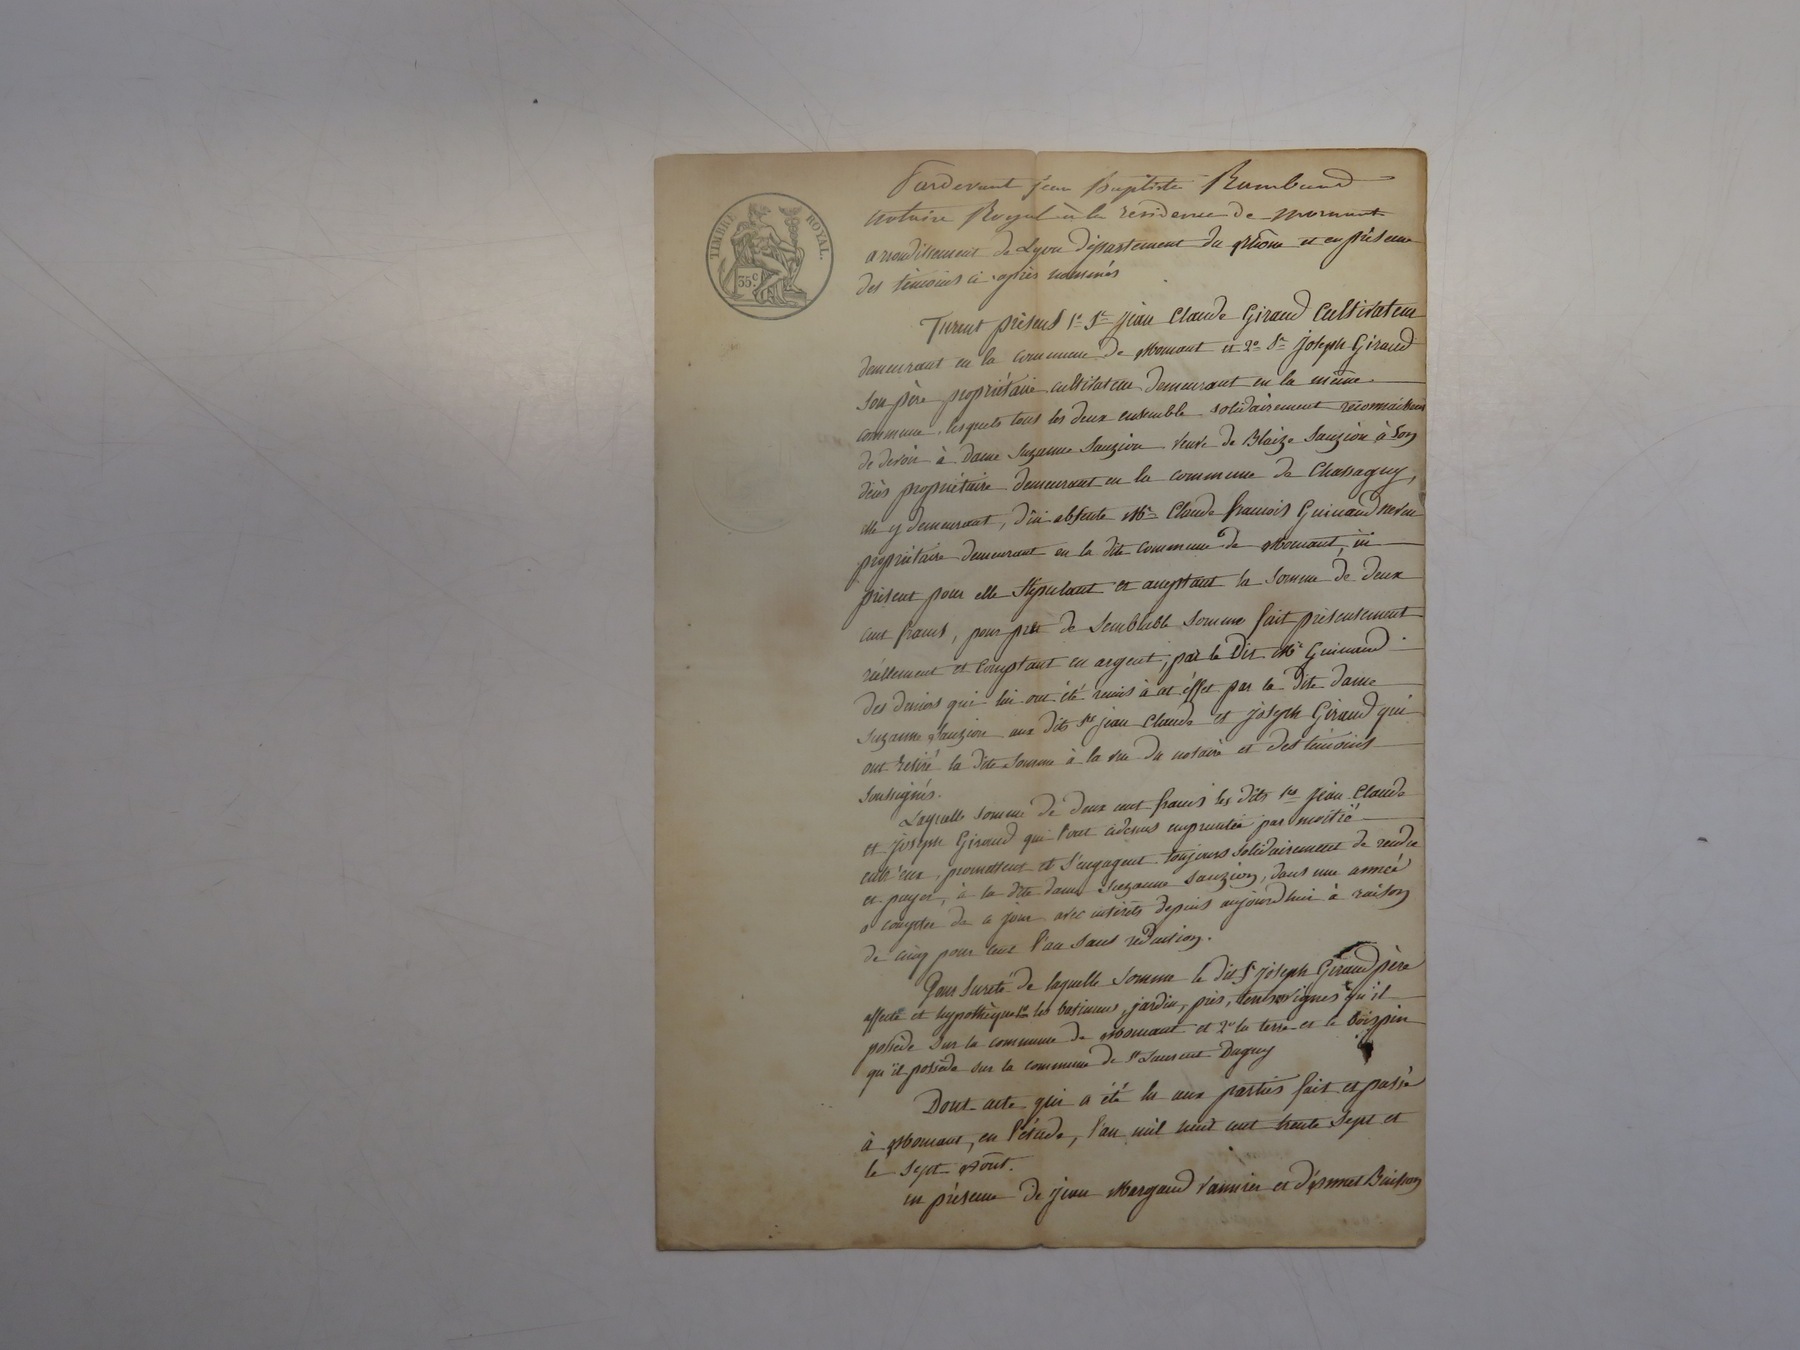 TIMBRE ROYAL.
35 c
Pardevant jean Baptiste Rambaud
notaire Royal à la résidence de mornant
arrondissement de Lyon département du Rhône et en présence
des témoins ci-après nommés
Furent présens 1° Sr jean Claude Giraud Cultivateur
demeurant en la commune de Mornant et 2° Sr joseph Giraud
son père propriétaire cultivateur demeurant en la même
commune, lesquels tous les deux ensemble solidairement reconnaissent
de devoir à dame Suzanne Sauzion veuve de Blaize Sauzion à son
décès propriétaire demeurant en la commune de Chassagny,
elle y demeurant, d'ici absente Mr Claude françois Guinand neveu
propriétaire demeurant en la dite commune de Mornant, ici
présent pour elle stipulant et acceptant la somme de deux
cent francs, pour prêt de semblable somme fait présentement
réellement et comptant en argent, par le dit Mr Guinand
des deniers qui lui ont été remis à cet éffet par la dite dame
Suzanne Sauzion aux dits Srs jean Claude et joseph Giraud qui
ont retiré la dite somme à la vue du notaire et des témoins
soussignés.
Laquelle somme de deux cent francs les dits Srs jean Claude
et joseph Giraud qui l'ont cidessus empruntée par moitié
entr'eux, promettent et s'engagent toujours solidairement de rendre
et payer, à la dite dame Suzanne Sauzion, dans une année
à compter de ce jour avec intérêts depuis aujourd'hui à raison
de cinq pour cent l'an sans réduction.
Pour sureté de laquelle somme le dit Sr joseph Giraud père
affecte et hypothèque 1° les batimens, jardin, prés, terres vignes qu'il
possède sur la commune de Mornant et 2° la terre et le bois pin
qu'il possède sur la commune de St Laurent Dagny
Dont acte qui a été lu aux parties fait et passé
à Mornant, en l'étude, l'an mil huit cent trente sept et
le sept Août.
en présence de jean Margaud vannier et d' Buisson